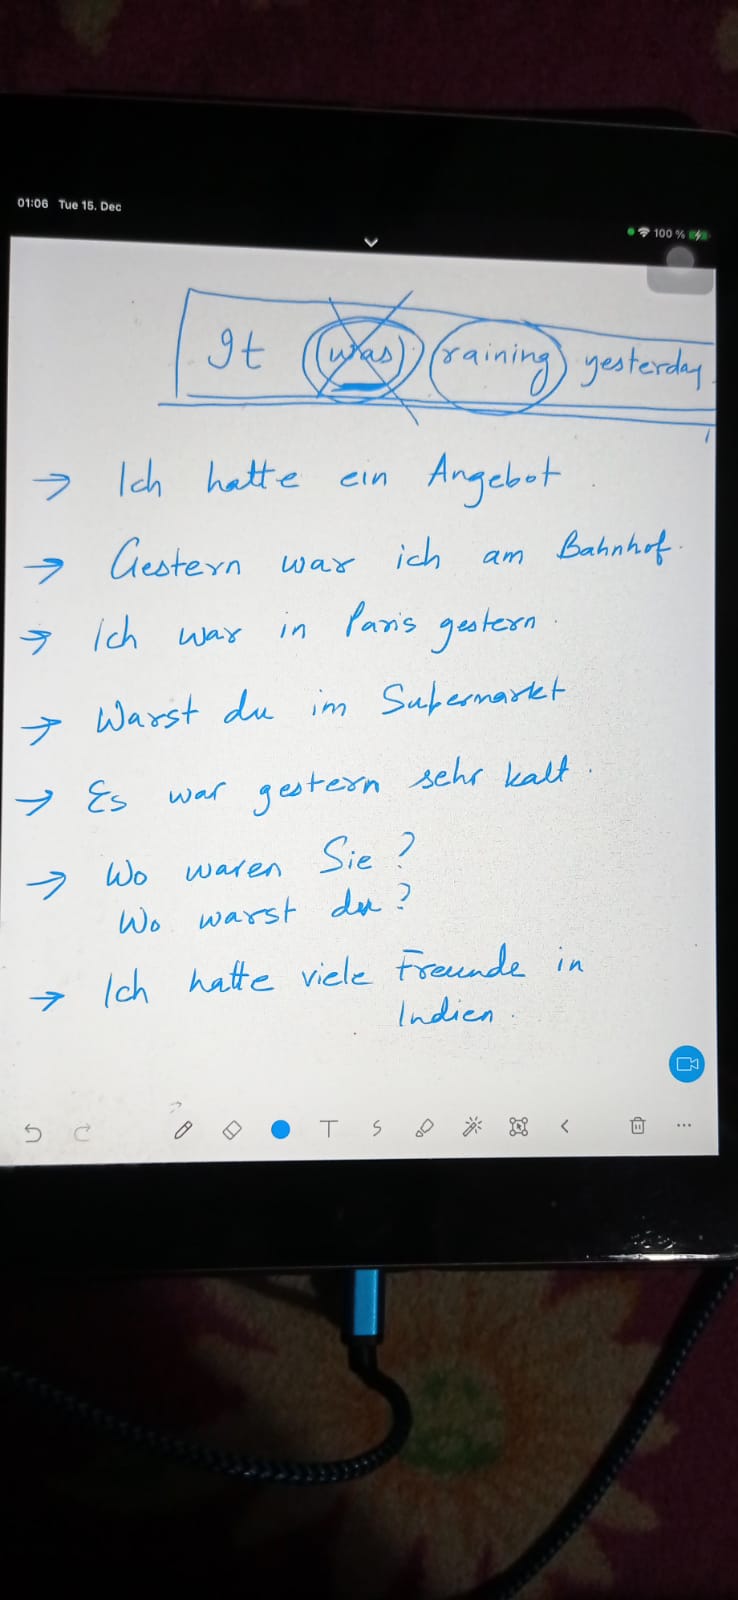 01:06 Tue 15. Dec
100 %
It was raining yesterday
→ Ich hatte ein Angebot.
→ Gestern war ich am Bahnhof.
→ Ich war in Paris gestern.
→ Warst du im Supermarkt
→ Es war gestern sehr kalt.
→ Wo waren Sie?
Wo warst du?
→ Ich hatte viele Freunde in
Indien.
T